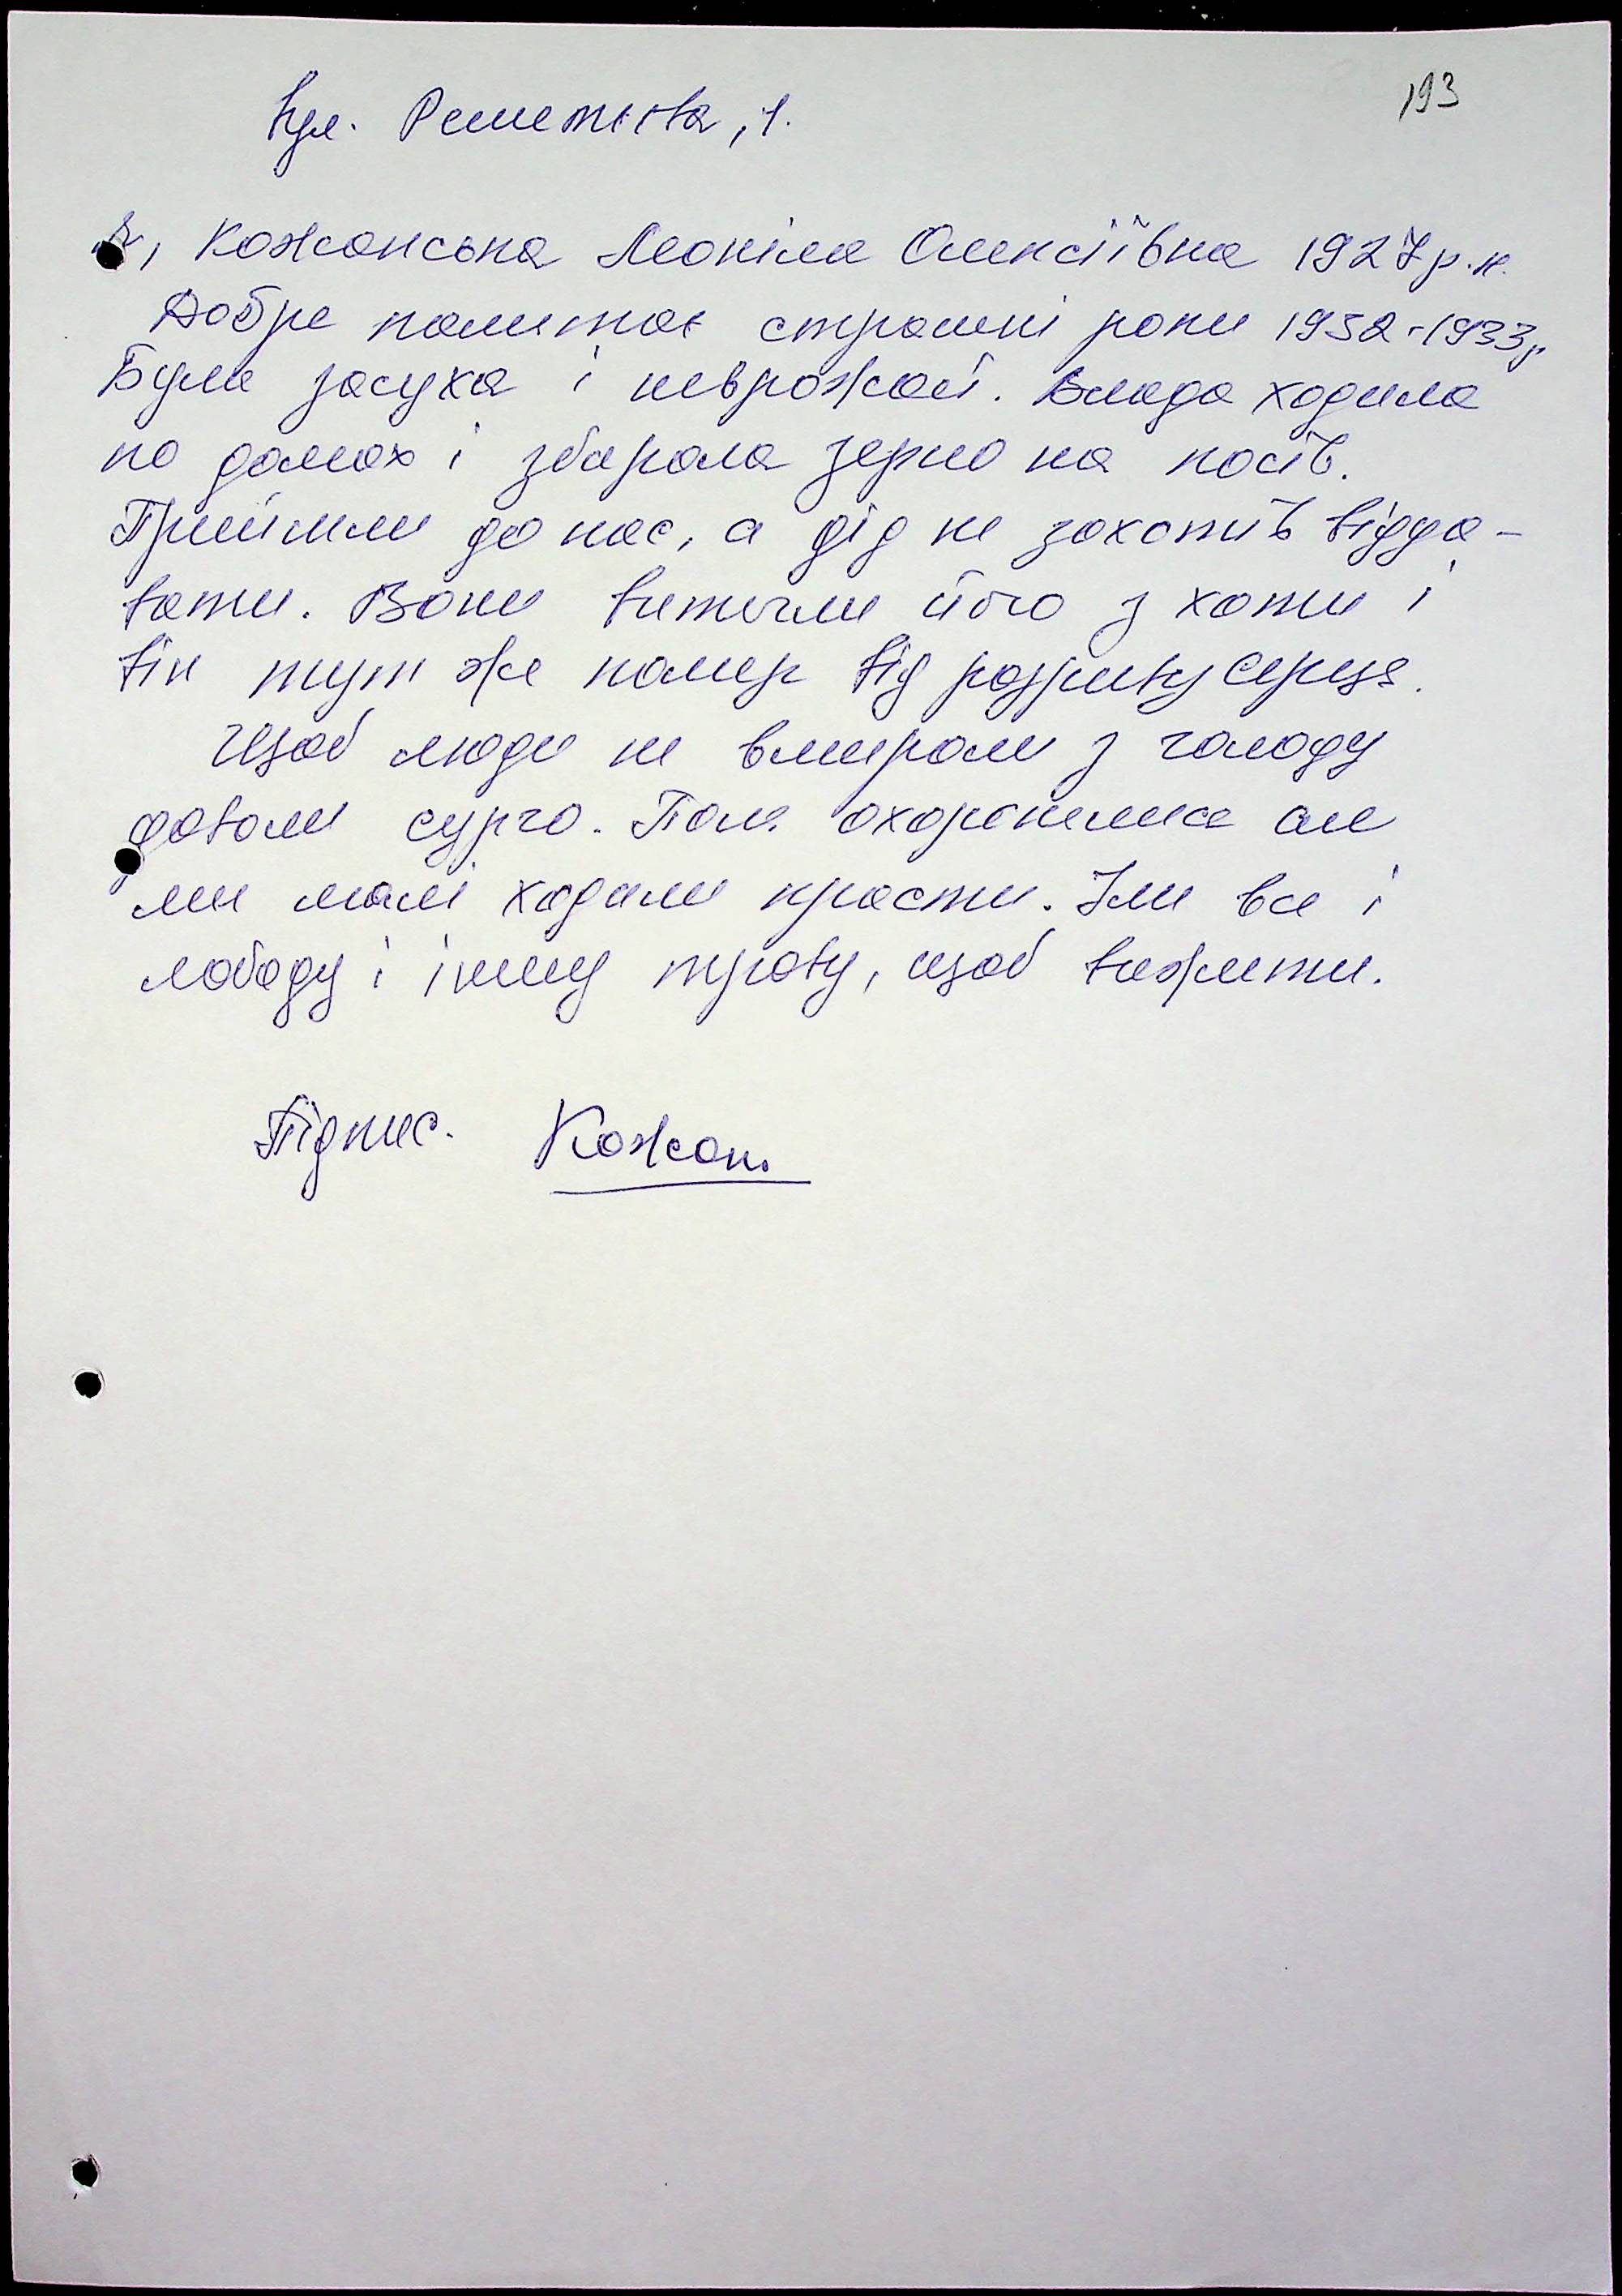 193
вул. Решетнєва, 1.
Я, Кожанська Меоніла Олексіївна 1927 р.н.
Добре памятає страшні роки 1932-1933р.
Була засуха і неврожай. Влада ходила
по домах і збирала зерно на посів.
Прийшли до нас, а дід не захотів відда-
вати. Вони витягли його з хати і
він тут же помер від розриву серця.
Щоб люди не вмирали з голоду
давали сурго. Поля охоронялися але
ми малі ходили красти. Їли все і
лободу і іншу траву, щоб вижити.
Підпис. Кожан.